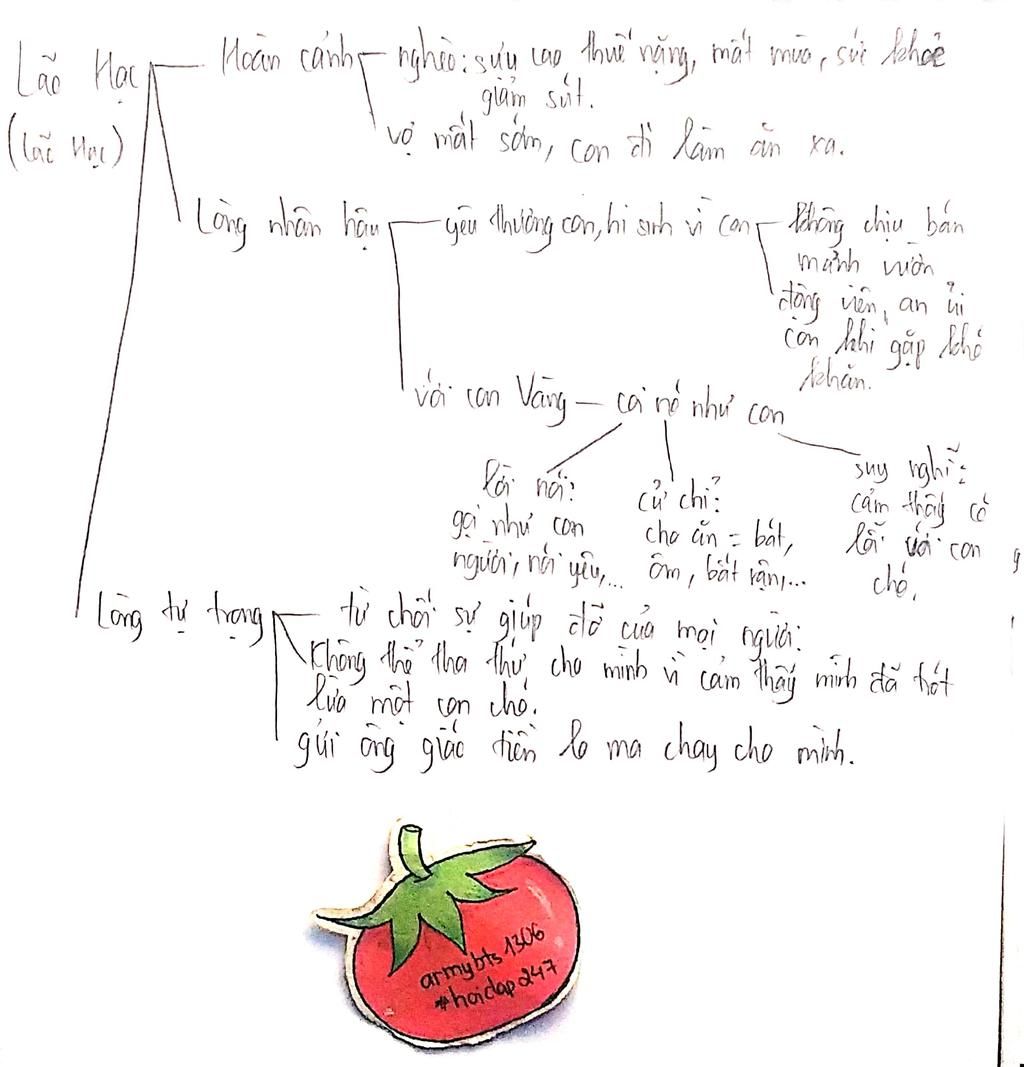 Lão Hạc
(Lão Hạc)
Hoàn cảnh
nghèo: sưu cao thuế nặng, mất mùa, sức khoẻ
giảm sút.
vợ mất sớm, con đi làm ăn xa.
Lòng nhân hậu
yêu thương con, hi sinh vì con
không chịu bán
mảnh vườn
động viên, an ủi
con khi gặp khó
khăn.
với con Vàng – coi nó như con
lời nói:
gọi như con
người, nói yêu,...
cử chỉ:
cho ăn = bát,
ôm, bắt rận,...
suy nghĩ:
cảm thấy có
lỗi với con
chó.
Lòng tự trọng
từ chối sự giúp đỡ của mọi người.
Không thể tha thứ cho mình vì cảm thấy mình đã trót
lừa một con chó.
gửi ông giáo tiền lo ma chay cho mình.
armybts1306
#hoidap247